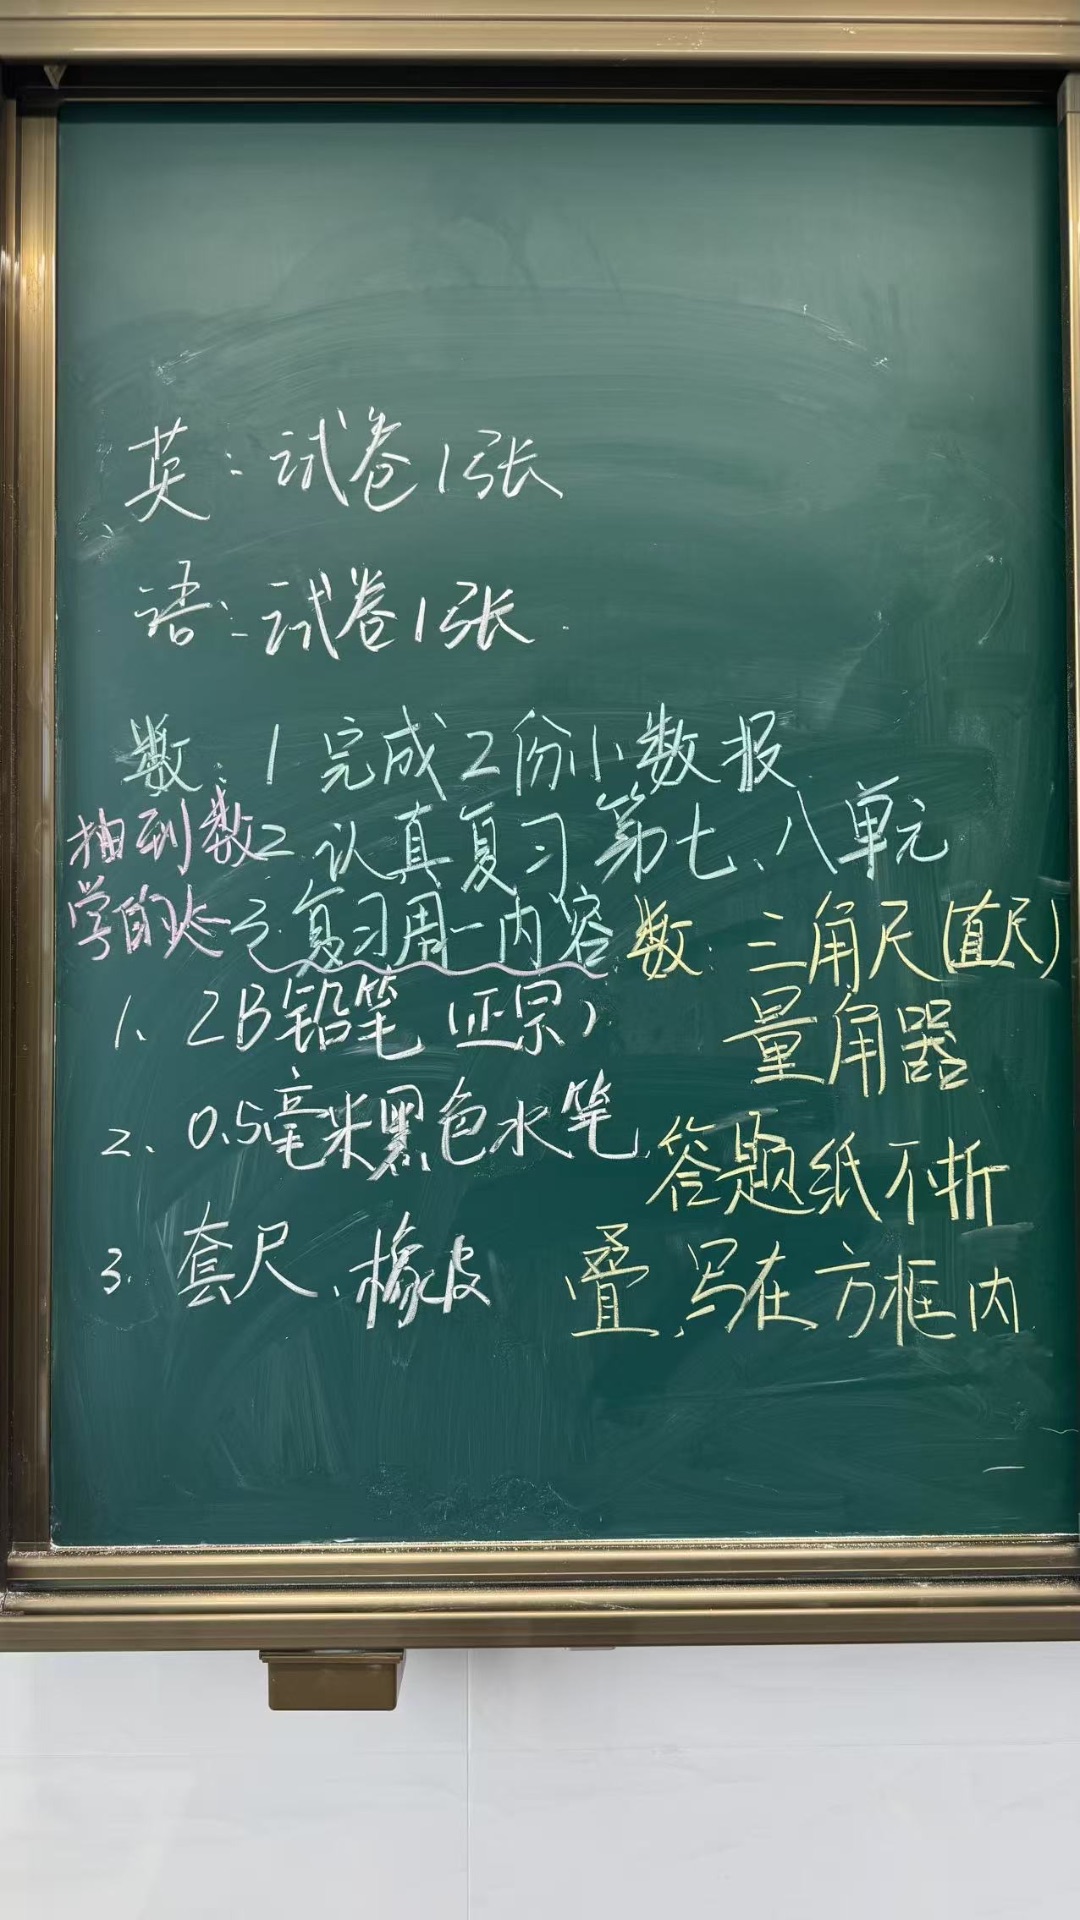 英：试卷1张
语：试卷1张
数：1 完成2份小数报
2.认真复习第七、八单元
抽到数
学的人
3.复习周一内容
数：三角尺（直尺）
量角器
1、2B铅笔（正宗）
2、0.5毫米黑色水笔
3.套尺、橡皮
答题纸不折
叠，写在方框内